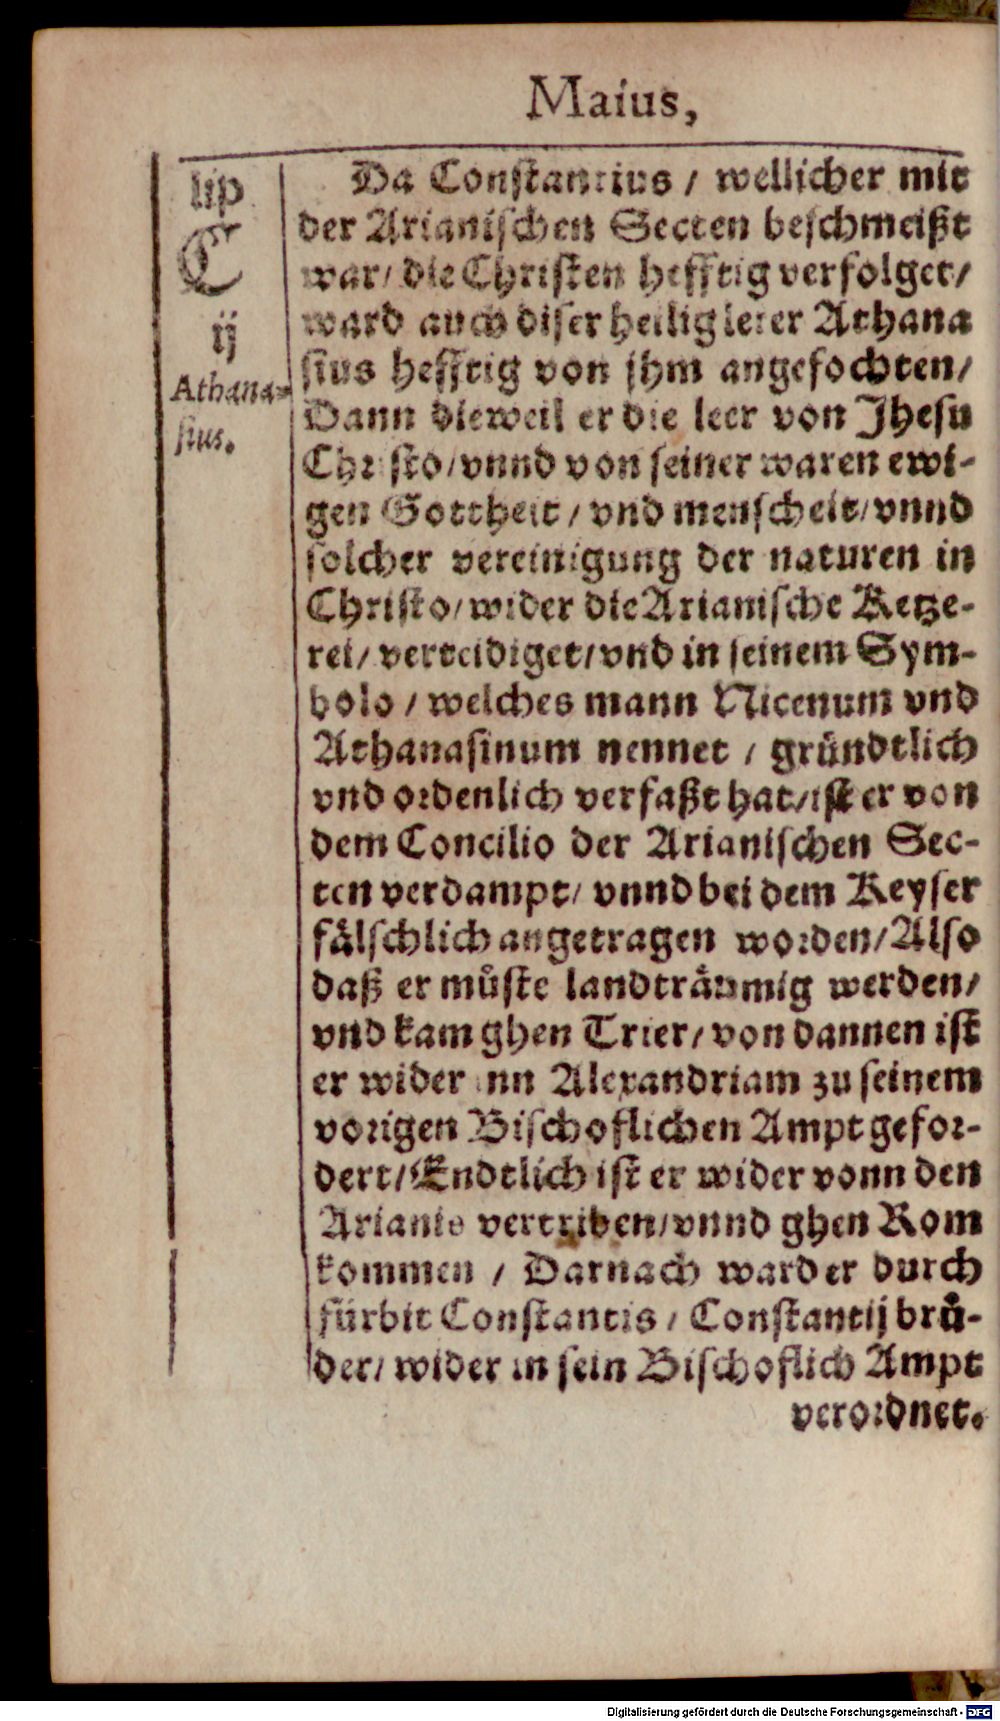 Maius,
lip
C
ij
Athana-
sius.
Da Constantius / wellicher mit
der Arianischen Secten beschmeißt
war / die Christen hefftig verfolget /
ward auch diser heilig lerer Athana
sius hefftig von jhm angefochten /
Dann dieweil er die leer von Jhesu
Christo / vnnd von seiner waren ewi-
gen Gottheit / vnd menscheit / vnnd
solcher vereinigung der naturen in
Christo / wider die Arianische Ketze-
rei / verteidiget / vnd in seinem Sym-
bolo / welches mann Nicenum vnd
Athanasinum nennet / gründtlich
vnd ordenlich verfaßt hat / ist er von
dem Concilio der Arianischen Sec-
ten verdampt / vnnd bei dem Keyser
fälschlich angetragen worden / Also
daß er můste landträumig werden /
vnd kam ghen Trier / von dannen ist
er wider inn Alexandriam zu seinem
vorigen Bischoflichen Ampt gefor-
dert / Endtlich ist er wider vonn den
Arianis vertriben / vnnd ghen Rom
kommen / Darnach ward er durch
fürbit Constantis / Constantij brů-
der / wider in sein Bischoflich Ampt
verordnet.
Digitalisierung gefördert durch die Deutsche Forschungsgemeinschaft - DFG